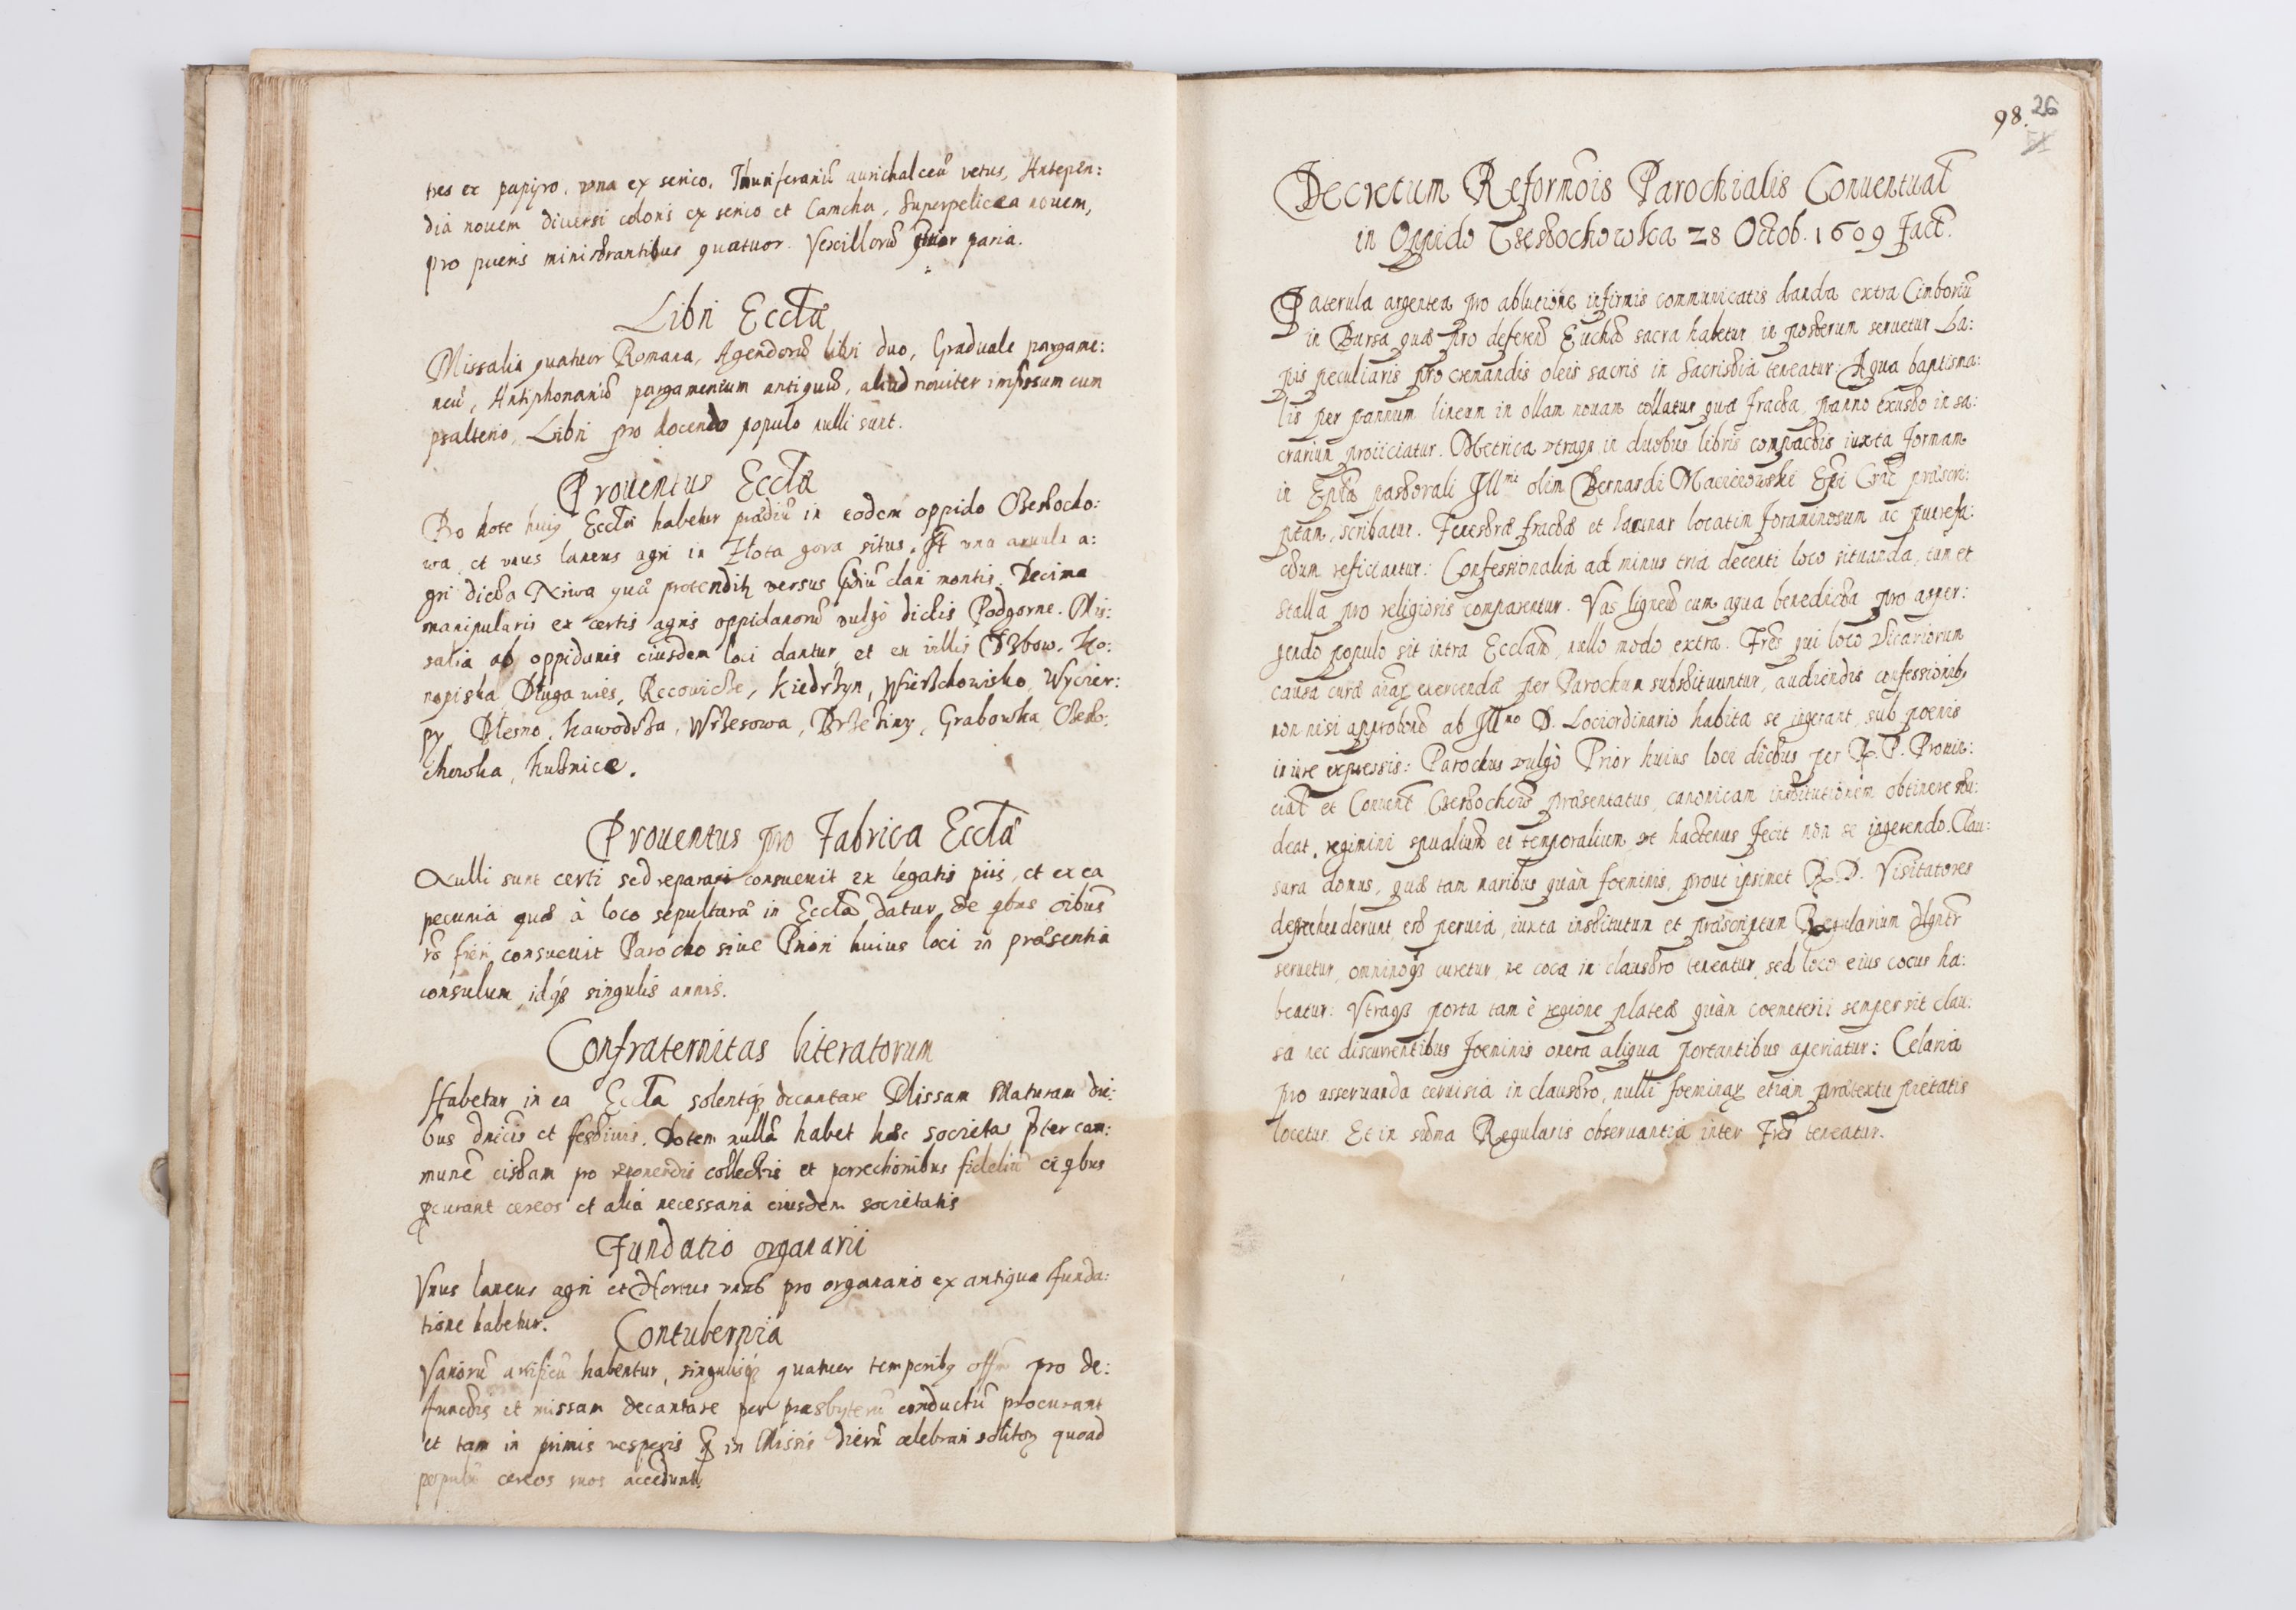 tres ex papyro, vna ex serico, Thuriferariũ aurichalceũ vetus, Antepen:
dia nouem diuersi coloris ex serico et Camcha, Superpelicea nouem,
pro pueris ministrantibus quatuor. Vexillorũ paria.
Libri Eccłæ
Missalia quatuor Romana, Agendorũ libri duo, Graduale pargame:
neũ, Antiphonariũ pargamenium antiquũ, aliud nouiter impressum cum
psalterio, Libri pro docendo populo nulli sunt.
Prouentus Eccłæ
Pro dote huiꝰ Eccłæ habetur prædiũ in eodem oppido Chestocho:
wa, et vnus laneus agri in Zlota gora situs. It vna areula a:
gri dicta Niwa quæ protenditꝛ versus clari montis. Decima
manipularis ex certis agris oppidanorũ vulgo dictis Podgorne. Mis:
salia ab oppidanis eiusdem loci dantur, et ex villis Dzbow, Ko:
nopiska, Długa wies, Kiedrzyn, Wierzchowisko, Wyczer:
py, Kawodrza, Wrzesowa, Brzeziny, Grabowka, Chesto:
chowka, Kuznice.
Prouentus pro Fabrica Eccłæ
Nulli sunt certi sed reparari consueuit ex legatis piis, et ex ea
pecunia quæ à loco sepulturæ in Eccła datur, de qbus oibus
fieri consueuit Parocho siue Priori huius loci in præsentia
consulum, idqꝫ singulis annis.
Confraternitas literatorum
Habetur in ea Eccła solentqꝫ decantare Missam Maturam die:
bus dnicis et festiuis. Dotem nullã habet hæc societas pter com:
munẽ cistam pro reponendis collectis et porrectionibus fideliũ ex qbus
pcurant cereos et alia necessaria eiusdem societatis
Fundatio organarii
Vnus laneus agri et Hortus vnus pro organario ex antiqua funda:
tione habetur.
Contubernia
Variorũ artificũ habentur, singulisqꝫ quatuor temporibꝰ offm pro de:
functis et missam decantare per præsbyterũ conductũ procurant
et tam in primis vesperis q̃ in Missis dierũ celebrari solitoꝝ quoad
populũ cereos suos accedunt.
98. 26
Decretum Reformõis Parochialis Conuentual
in Oppido Czestochowka 28 Octob. 1609 fact.
Paterula argentea pro ablucione infirmis communicatis danda extra Cimboriũ
in Bursa quæ pro deferend Euchã sacra habetur in posterum seruetur. La:
pis peculiaris pro cremandis oleis sacris in Sacristia teneatur. Aqua baptisma:
lis per pannum lineum in ollam nouam collatur qua fracta, panno exusto in sa:
crarium proiiciatur. Metrica vtraqꝫ in duobus libris compactis iuxta formam
in Epła pastorali Illmi olim Bernardi Macieiowski Epi Crac præscri:
ptam, scribatur. Fenestræ fractæ et lacunar locatim foraminosum ac putrefa:
ctum reficiantur: Confessionalia ad minus tria decenti loco situanda, tum et
stalla pro religiosis comparentur. Vas ligneũ cum aqua benedicta pro asper:
gendo populo sit intra Eccłam, nullo modo extra. Frēs qui loco vicariorum
causa curæ aĩaꝝ exercendæ per Parochum substituuntur, audiendis confessionibꝰ
non nisi approbõne ab Illmo D. Lociordinario habita se ingerant, sub poenis
in iure expressis: Parochus vulgò Prior huius loci dictus per R. P. Prouin:
cial et Conuent Czestochow præsentatus, canonicam institutionem obtinere stu:
deat, regimini spualium et temporalium, vt hactenus fecit non se ingerendo. Clau:
sura domus, quæ tam maribus quàm foeminis, prout ipsimet R. D. Visitatores
deprehenderunt est peruia, iuxta institutum et præscriptum Regularium dilgntr
seruetur, omninoqꝫ curetur, ne coca in claustro teneatur, sed loco eius cocus ha:
beatur: Vtraqꝫ porta tam è regione plateæ quàm coemeterii semper sit clau:
sa nec discurrentibus foeminis onera aliqua portantibus aperiatur: Celaria
pro asseruanda ceruisia in claustro, nulli foeminaꝝ etiam prætextu pietatis
locetur. Et in sũma Regularis obseruantia inter Frēs teneatur.